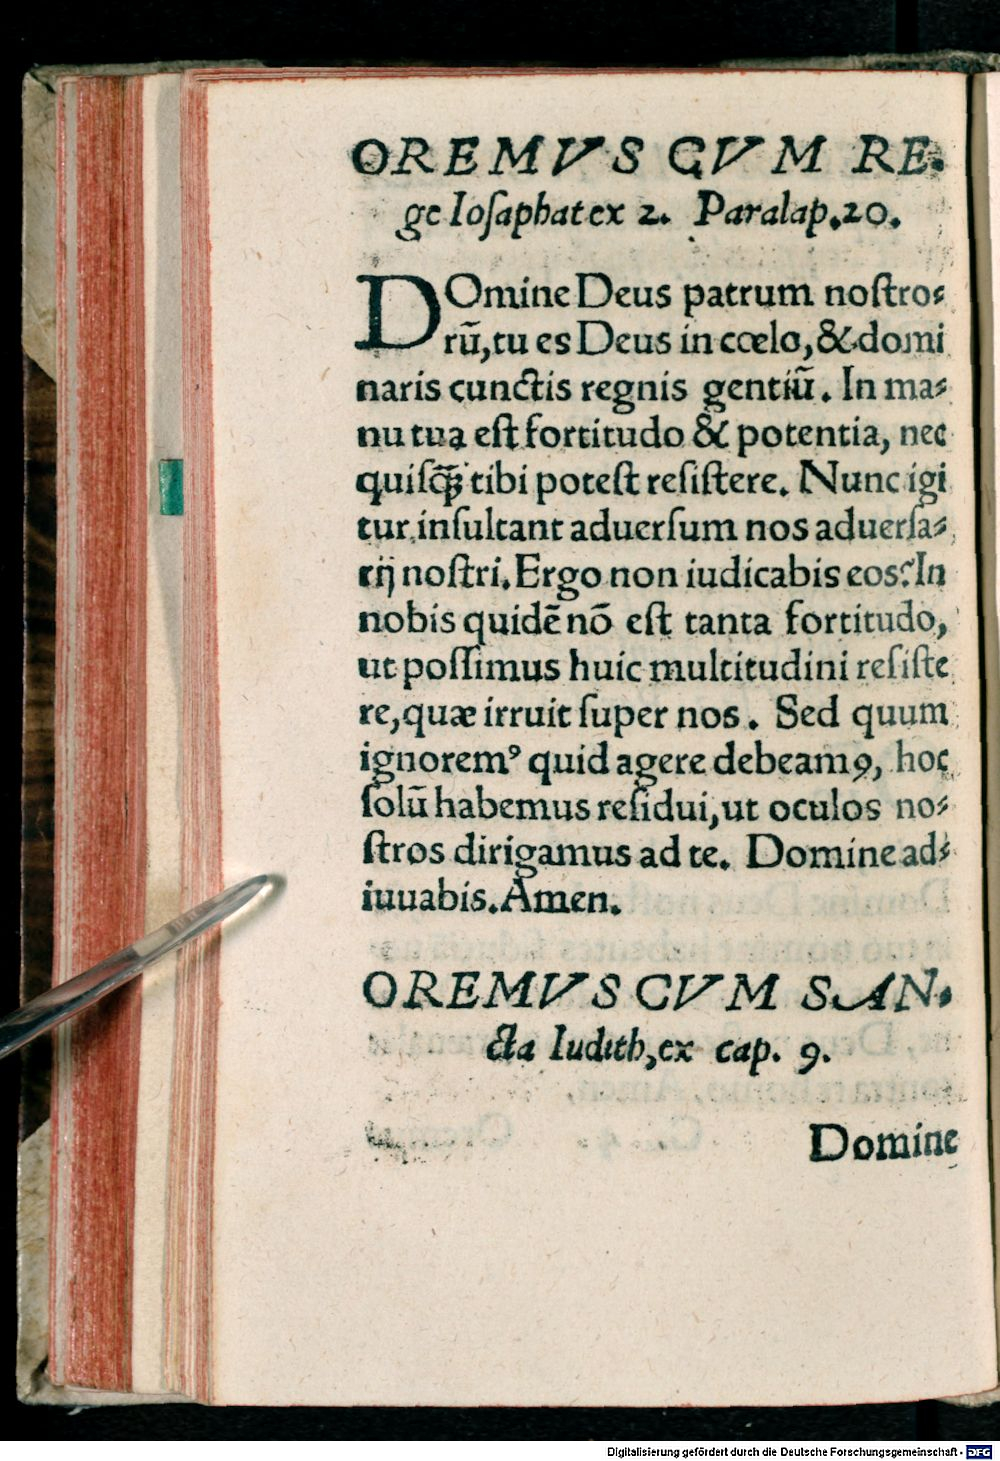 OREMVS CVM RE.
ge Ioſaphat ex 2. Paralap.20.
DOmine Deus patrum noſtro⸗
rũ, tu es Deus in cœlo, & domi
naris cunctis regnis gentiũ. In ma⸗
nu tua eſt fortitudo & potentia, nec
quiſq̃ꝫ tibi poteſt reſiſtere. Nunc igi
tur inſultant aduerſum nos aduerſa⸗
rij noſtri. Ergo non iudicabis eos? In
nobis quidẽ nõ eſt tanta fortitudo,
ut poſſimus huic multitudini reſiſte
re, quæ irruit ſuper nos. Sed quum
ignoremꝰ quid agere debeamꝯ, hoc
ſolũ habemus reſidui, ut oculos no⸗
ſtros dirigamus ad te. Domine ad⸗
iuuabis. Amen.
OREMVS CVM SAN.
cta Iudith, ex cap. 9.
Domine
Digitalisierung gefördert durch die Deutsche Forschungsgemeinschaft - DFG